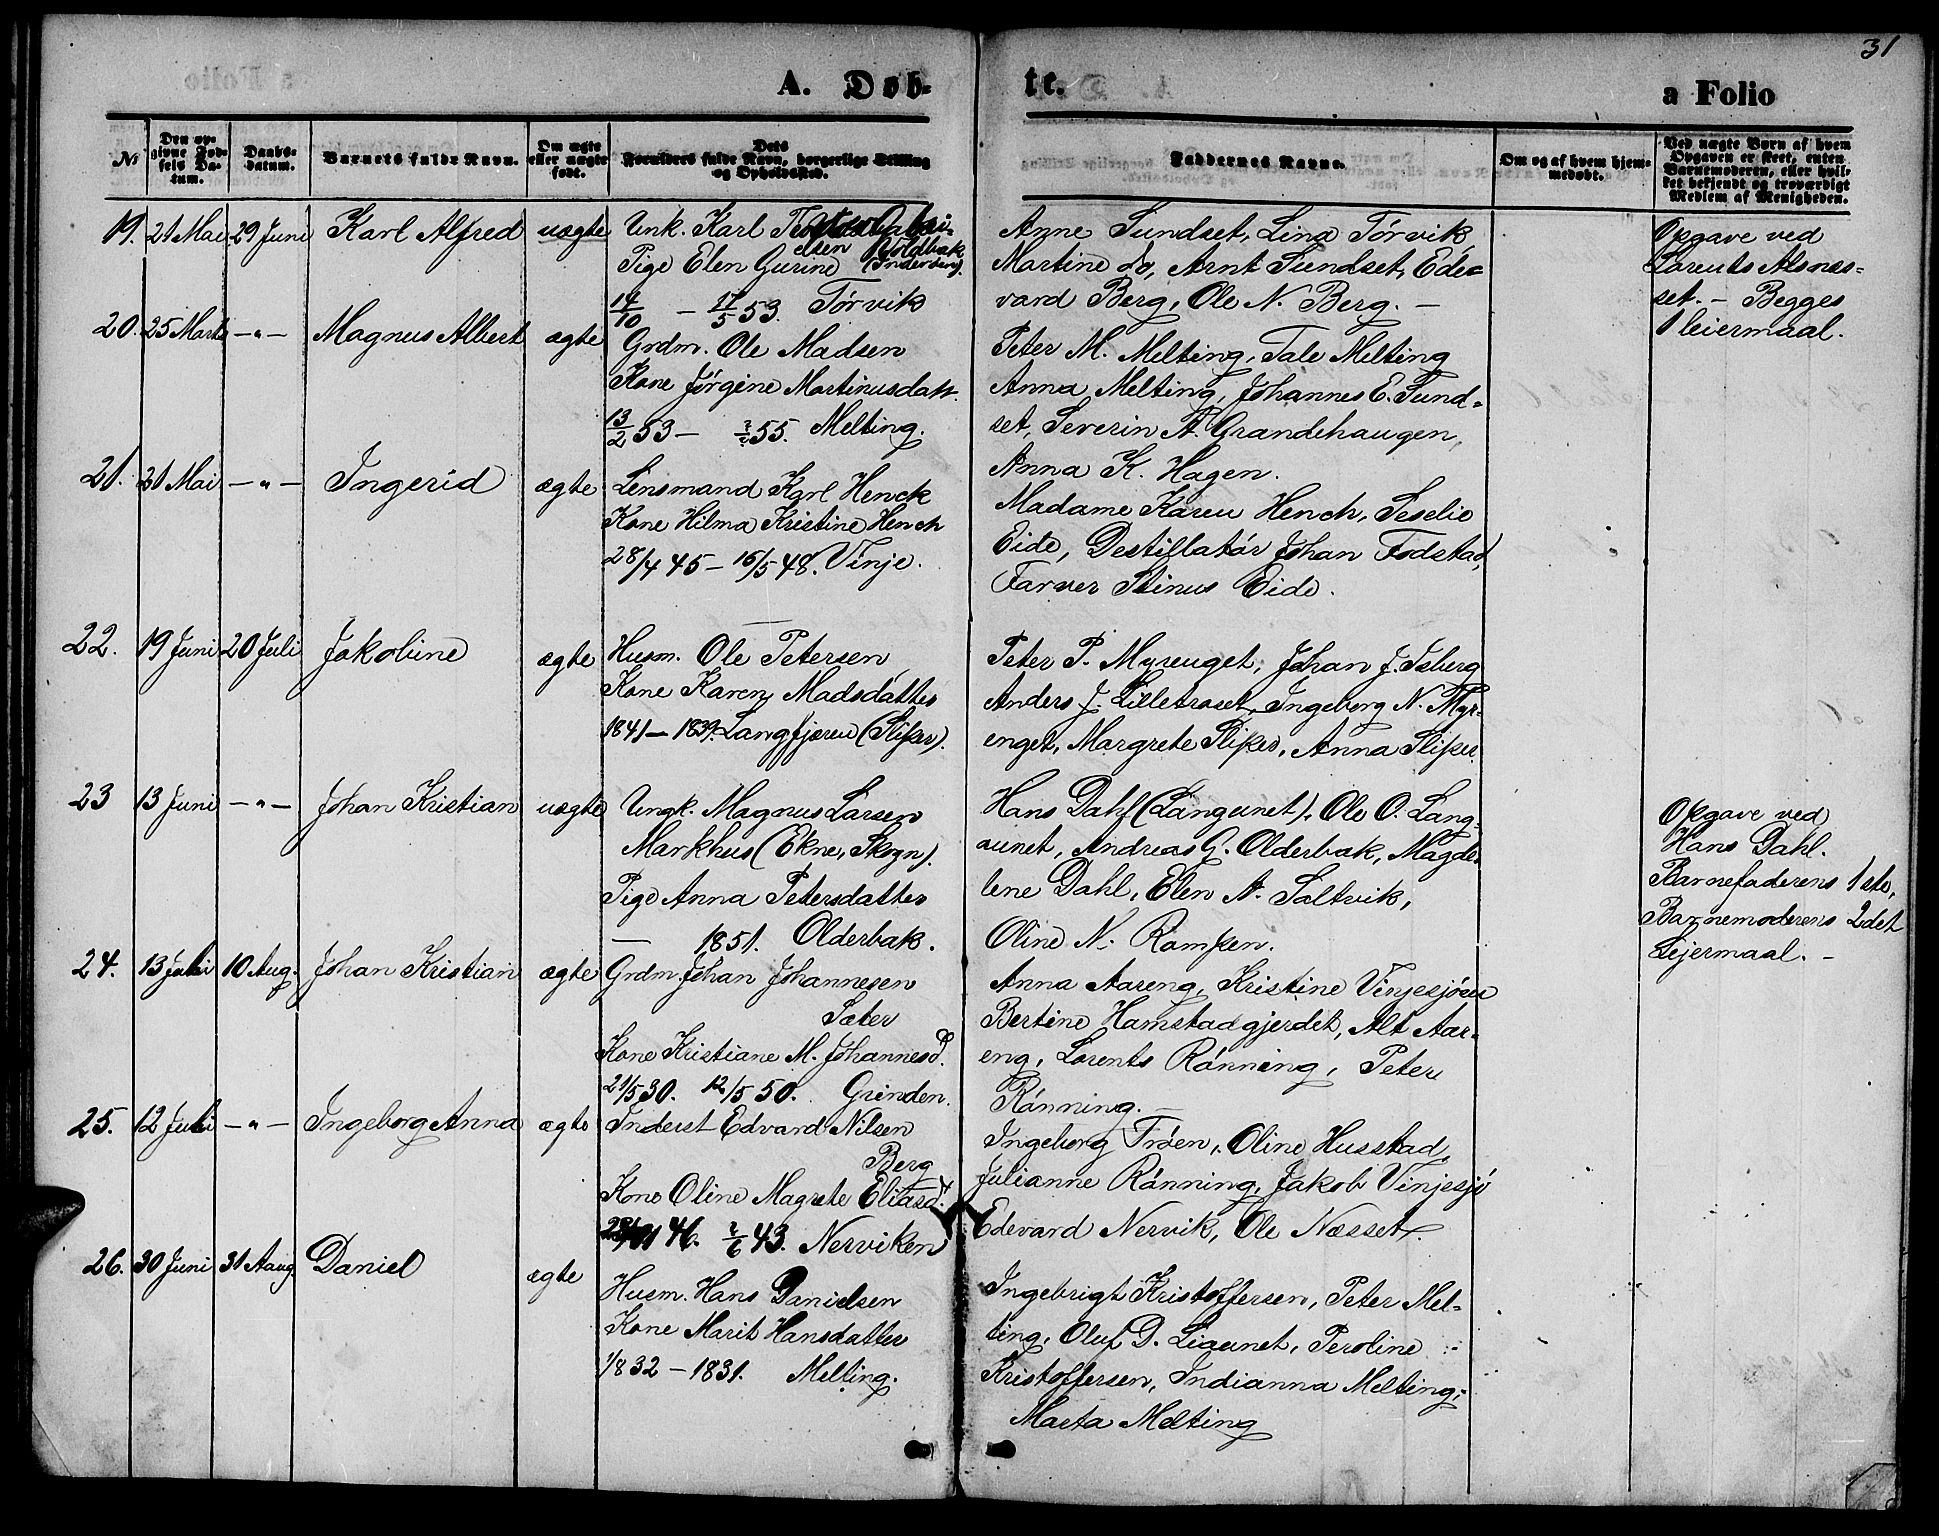 31
A. Døb-
te.
a Folio
No
Den opgivne Fødsels Datum.
Daabsdatum.
Barnets fulde Navn.
Om ægte eller uægte født.
Dets Forældres fulde Navn, borgerlige Stilling og Opholdssted.
Faddernes Navne.
Om og af hvem hjemmedøbt.
Ved uægte Børn af hvem Opgaven er skeet, enten Barnemoderen, eller hvilket bekjendt og troværdigt Medlem af Menigheden.
19. 21 Mai 29 Juni Karl Alfred uægte
Unk. Karl
elsen Holdbak
Pige Elen Gurine (Inderøen).
14/10 — 17/5 53. Tørvik
Anne Sundset, Lina Tørvik,
Martine do, Arnt Sundset, Ede=
vard Berg, Ole N. Berg. —
Opgave ved
Lorents Alsnæs=
set. — Begges
1 leiermaal.
20. 25 Marts —"— Magnus Albert ægte
Grdm. Ole Madsen
Kone Jørgine Martinusdatt.
13/2 53 — ?/? 55. Melting.
Peter M. Melting, Tale Melting
Anna Melting, Johannes E. Sund=
set, Severin A. Grandehaugen,
Anna K. Hagen.
21. 21 Mai —"— Ingerid ægte
Lensmand Karl Henck
Kone Hilma Kristine Hench
28/4 45 — 16/5 48. Vinje.
Madame Karen Hench, Seselie
Eide, Destillatør Johan Fodstad,
Farver Stinus Eide.
22. 19 Juni 20 Juli Jakobine ægte
Husm. Ole Petersen
Kone Karen Madsdatter
1841 — 1839. Langfjæren (Sliper).
Peter P. Myrenget, Johan J. Isberg
Anders J. Lilletraset, Ingeborg N. Myr=
enget, Margrete Sliper, Anna Sliper.
23 13 Juni —"— Johan Kristian uægte
Ungk. Magnus Larsen
Markhus (Ekne, Skogn).
Pige Anna Petersdatter
— 1851. Olderbak.
Hans Dahl (Langaunet), Ole O. Lang=
aunet, Andreas G. Olderbak, Magda=
lene Dahl, Elen A. Saltvik,
Oline N. Ramsen.
Opgave ved
Hans Dahl.
Barnefaderens 1ste,
Barnemoderens 2det
Lejermaal. —
24. 13 Juli 10 Aug. Johan Kristian ægte
Grdm. Johan Johannesen
Sæter
Kone Kristiane M. Johannesd.
21/5 30. 12/5 50. Grinden.
Anna Aareng, Kristine Vinjesjøen
Bertine Hamstadgjerdet, Alt Aar=
eng, Lorents Rønning, Peter
Rønning. —
25. 12 Juli —"— Ingeborg Anna ægte
Inderst Edvard Nilsen
Berg
Kone Oline Magrete Eliasd.
46. ?/6 43. Nerviken
Ingeborg Trøen, Oline Husstad,
Julianne Rønning, Jakob Vinjesjø
Edevard Nervik, Ole Næsset.
26. 30 Juni 31 Aaug. Daniel ægte
Husm. Hans Danielsen
Kone Marit Hansdatter
1/8 32 — 1831. Melting.
Ingebrigt Kristoffersen, Peter Mel=
ting, Oluf D. Liaunet, Peroline
Kristoffersen, Indianna Melting,
Marta Melting